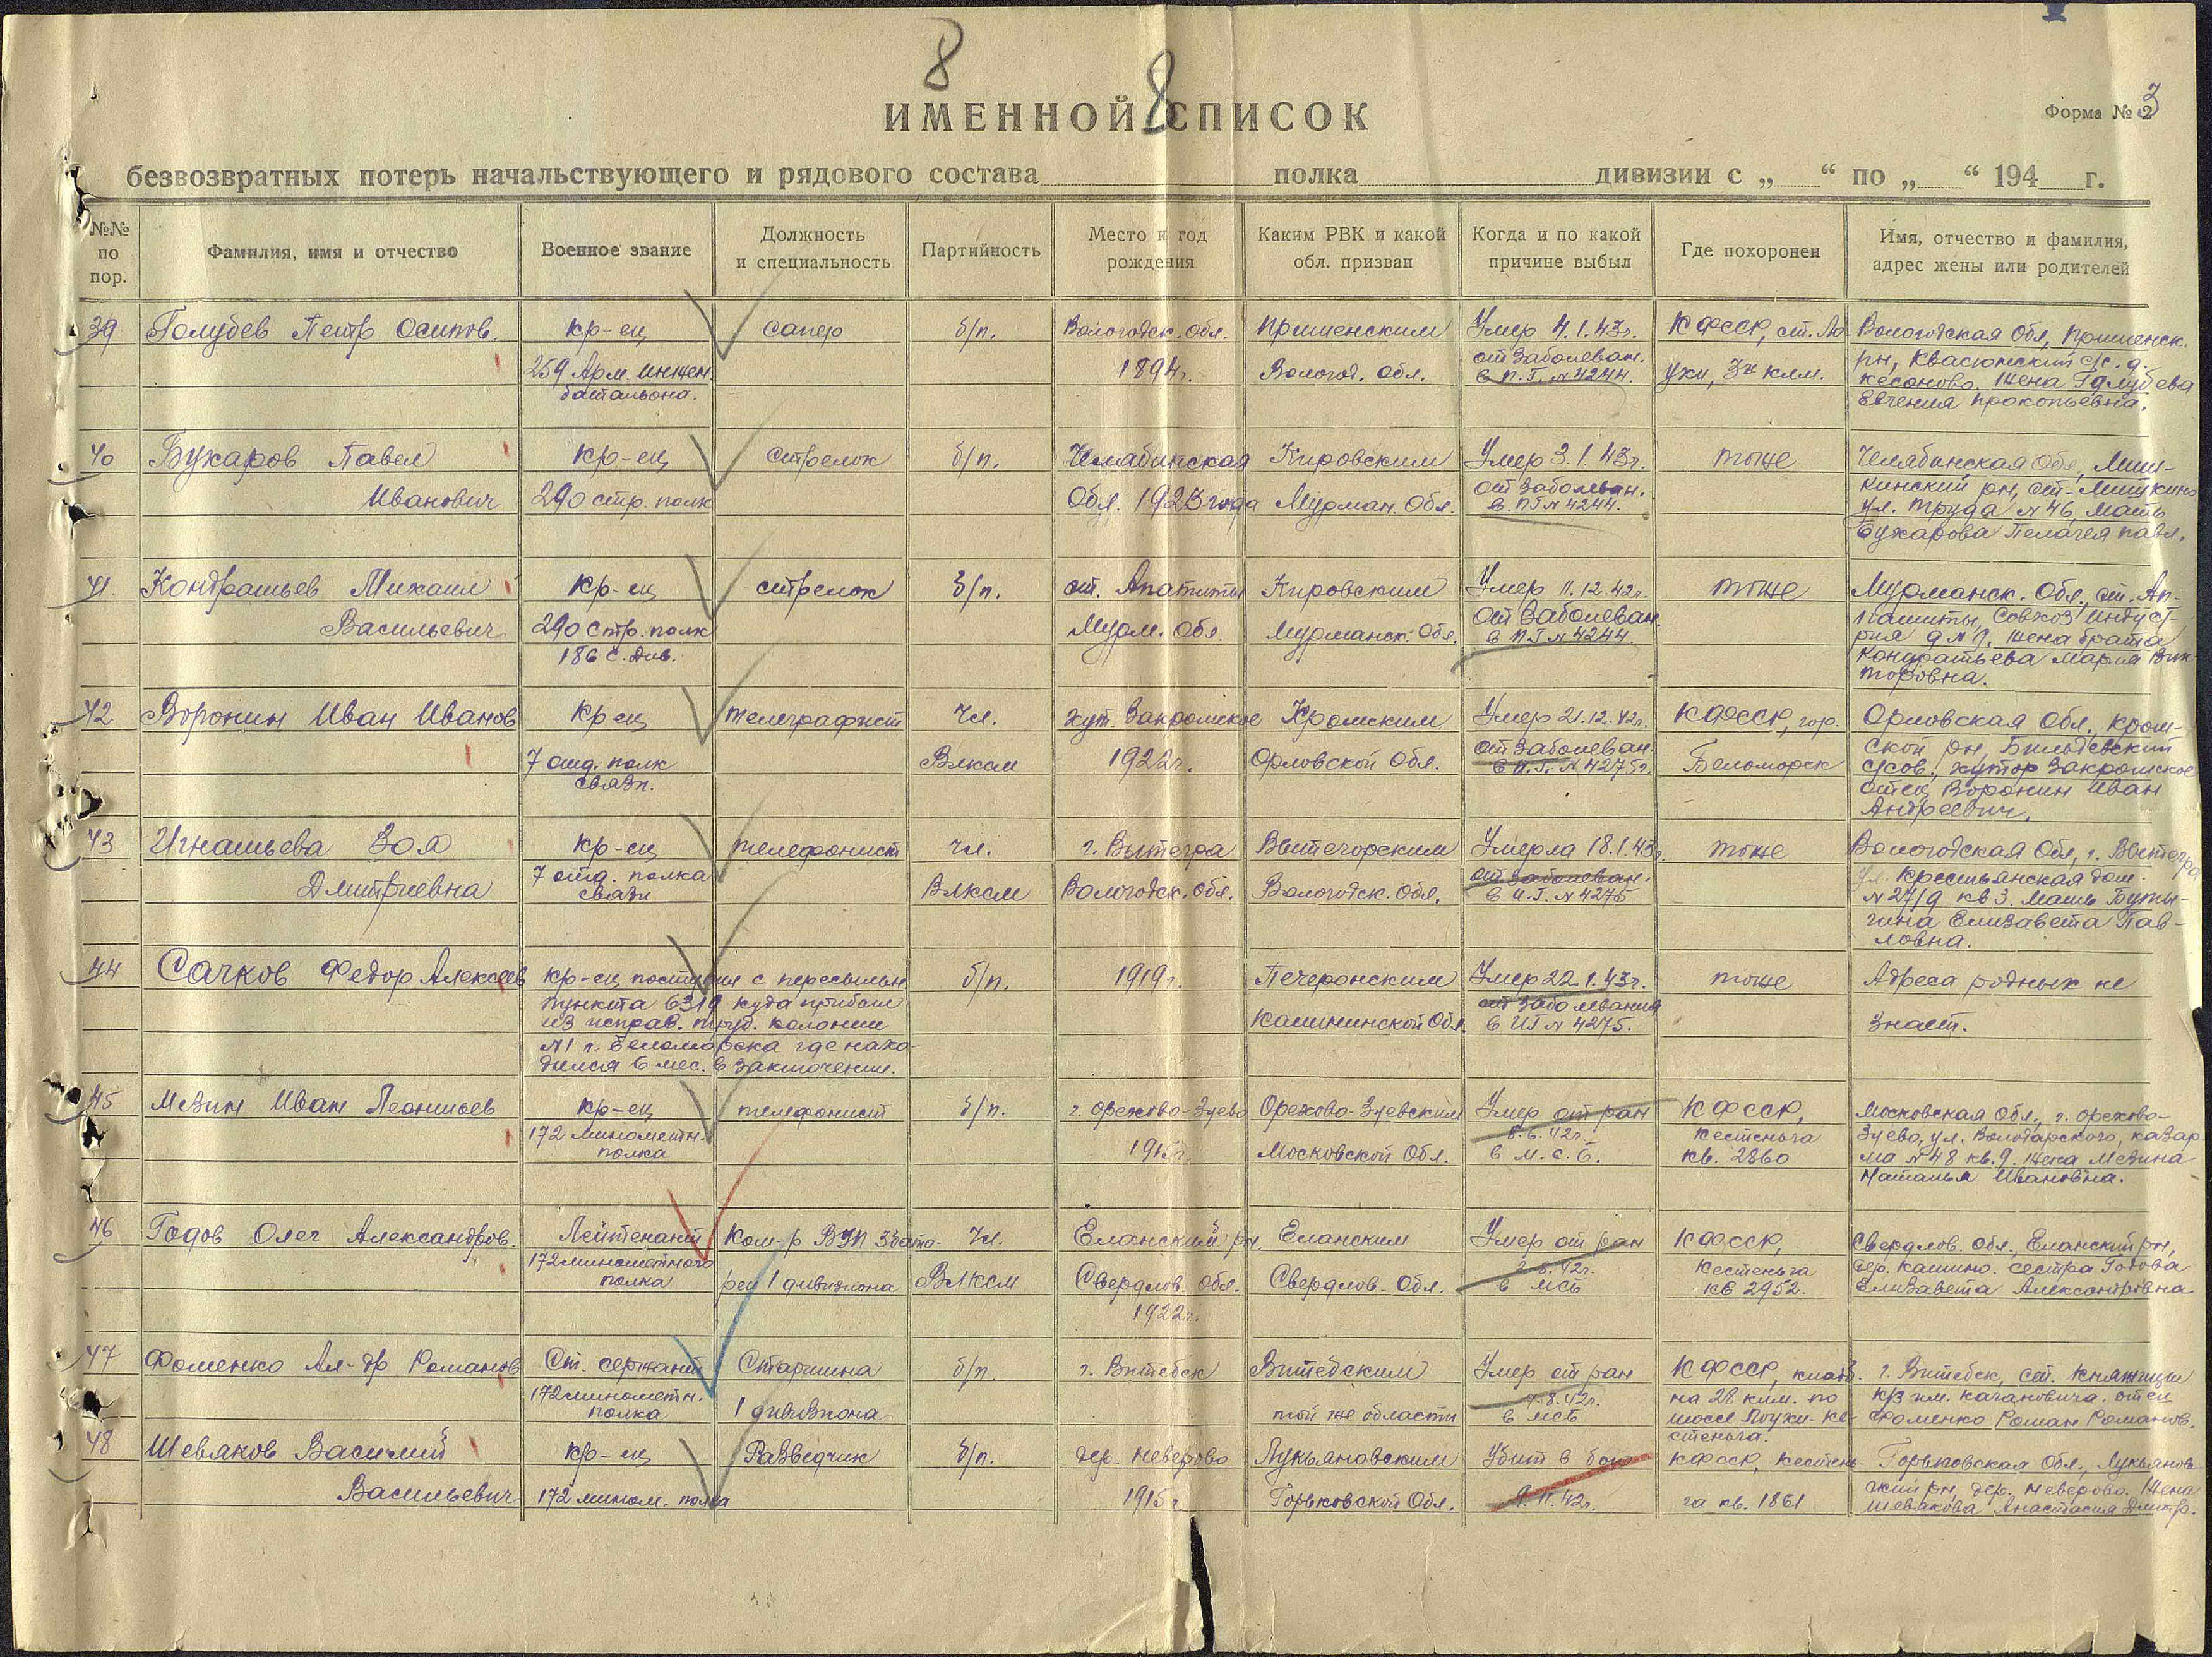 8
8
ИМЕННОЙ СПИСОК
Форма № 2 3
безвозвратных потерь начальствующего и рядового состава полка дивизии с „ “ по „ “ 194 г.
№№ по пор.
Фамилия, имя и отчество
Военное звание
Должность и специальность
Партийность
Место и год рождения
Каким РВК и какой обл. призван
Когда и по какой причине выбыл
Где похоронен
Имя, отчество и фамилия, адрес жены или родителей
39 Голубев Петр Осипов. кр-ец сапер б/п. Вологодск. обл. Пришенским Умер 4.1.43г. КФССР, ст. Ло Вологодская Обл, Пришенск.
259 Арм. инжен. 1894г. Вологод. Обл. от заболеван. ухи, 3й клм. рн, Квасюнский с/с. д.
батальона. в П.Г. № 4244. Кесоново. Жена Голубева
Евгения Прокопьевна.
40 Бухаров Павел кр-ец стрелок б/п. Челябинская Кировским Умер 3.1.43г. тоже Челябинская Обл, Миш-
Иванович 290 стр. полк Обл. 1923 года Мурман. Обл. от заболеван. кинский рн, ст-Мишкино
в ПГ № 4244. ул. Труда № 46, мать
Бухарова Пелагея Павл.
41 Кондратьев Михаил кр-ец стрелок б/п. ст. Апатиты Кировским Умер 11.12.42г. тоже Мурманск. Обл., ст. Ап-
Васильевич 290 стр. полк Мурм. Обл. Мурманск. Обл. от заболеван. патиты, совхоз Индуст-
186 с. див. в ПГ № 4244. рия д №7, жена брата
Кондратьева Мария Вик-
торовна.
42 Воронин Иван Иванов кр-ец телеграфист Чл. хут. Закромское Кромским Умер 21.12.42г. КФССР, гор. Орловская Обл., Кром-
7 отд. полк ВЛКСМ 1922г. Орловской Обл. от заболеван. Беломорск ской рн,
связи. в И.Г. № 4275г. с/сов., хутор Закромское
отец Воронин Иван
Андреевич.
43 Игнатьева Зоя кр-ец телефонист чл. г. Вытегра Вытегорским Умерла 18.1.43г тоже Вологодская Обл, г. Вытегра
Дмитриевна 7 отд. полка ВЛКСМ Вологодск. Обл. Вологодск. Обл. от заболеван. ул. Крестьянская дом.
связи в И.Г. № 4275 № 27/9 кв 3. Мать Буты-
гина Елизавета Пав-
ловна.
44 Сачков Федор Алексеев кр-ец поступил с пересыльн б/п. 1919г. Печеронским Умер 22.1.43г. тоже Адреса родных не
пункта 6319 куда прибыл от заболевания
из исправ. труд. колонии Калининской Обл. в ИГ № 4275. знает.
№1 г. Беломорска где нахо-
дился 6 мес. в заключении.
45 Мезин Иван Леонтьев кр-ец телефонист б/п. г. Орехово-Зуево Орехово-Зуевским Умер от ран КФССР, Московская Обл., г. Орехово-
172 минометн. 8.6.42г. Кестеньга Зуево, ул. Володарского, казар
полка 1915г. Московской Обл. в М.С.Б. кв. 2860 ма № 48 кв. 9. Жена Мезина
Наталья Ивановна.
46 Годов Олег Александров. Лейтенант Ком-р ВУП 3 бата- Чл. Еланский рн, Еланским Умер от ран КФССР, Свердлов. Обл., Еланский рн,
172 минометного 42г. Кестеньга дер. Кашино. сестра Годова
полка реи 1 дивизиона ВЛКСМ Свердлов. Обл. Свердлов. Обл. в МСБ кв 2952. Елизавета Александровна
1922г.
47 Фоменко Ал-др Романов Ст. сержант Старшина б/п. г. Витебск Витебским Умер от ран КФССР, кладб. г. Витебск, ст. Княжицы
172 минометн. .8.42г. на 28 клм. по к/з им. Качановича. отец
полка 1 дивизиона той же области в МСБ шоссе Лоухи-Ке- Фоменко Роман Романов.
стеньга.
48 Шевяков Василий кр-ец Разведчик б/п. дер. Неверово Лукьяновским Убит в бою КФССР, Кестень- Горьковская Обл., Лукьянов-
Васильевич 172 мином. полка 1915г Горьковской Обл. 9.11.42г. га кв. 1861 ский рн, дер. Неверово. Жена
Шевякова Анастасия Дмитр.